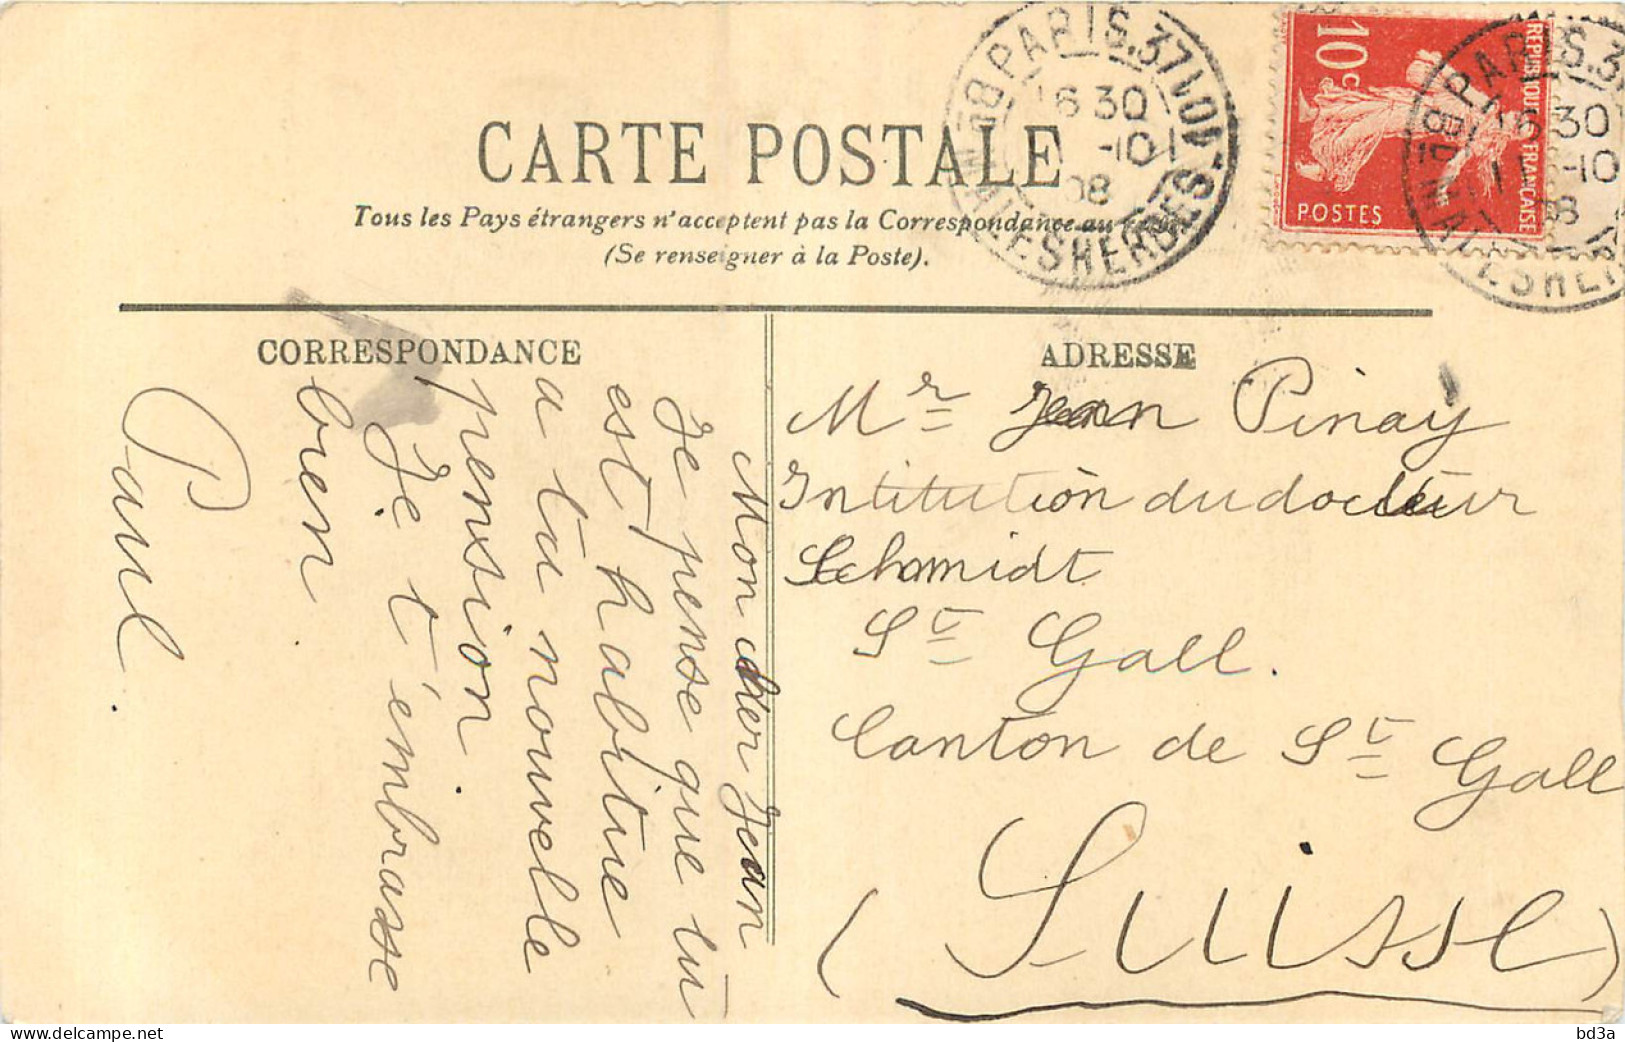 CARTE POSTALE
Tous les Pays étrangers n'acceptent pas la Correspondance au
(Se renseigner à la Poste).
PARIS.37
16 30
-10
08
MALESHERBES
10c
REPUBLIQUE FRANÇAISE
POSTES
PARIS.3
16 30
11 -10
08
CORRESPONDANCE
Mon cher Jean
Je pense que tu
est habitue
a ta nouvelle
pension
bien
Je t'embrasse
Paul.
ADRESSE
Mr Jean Pinay
Intitution du docteur
Schmidt
St Gall.
Canton de St Gall
(Suisse)
bd3a